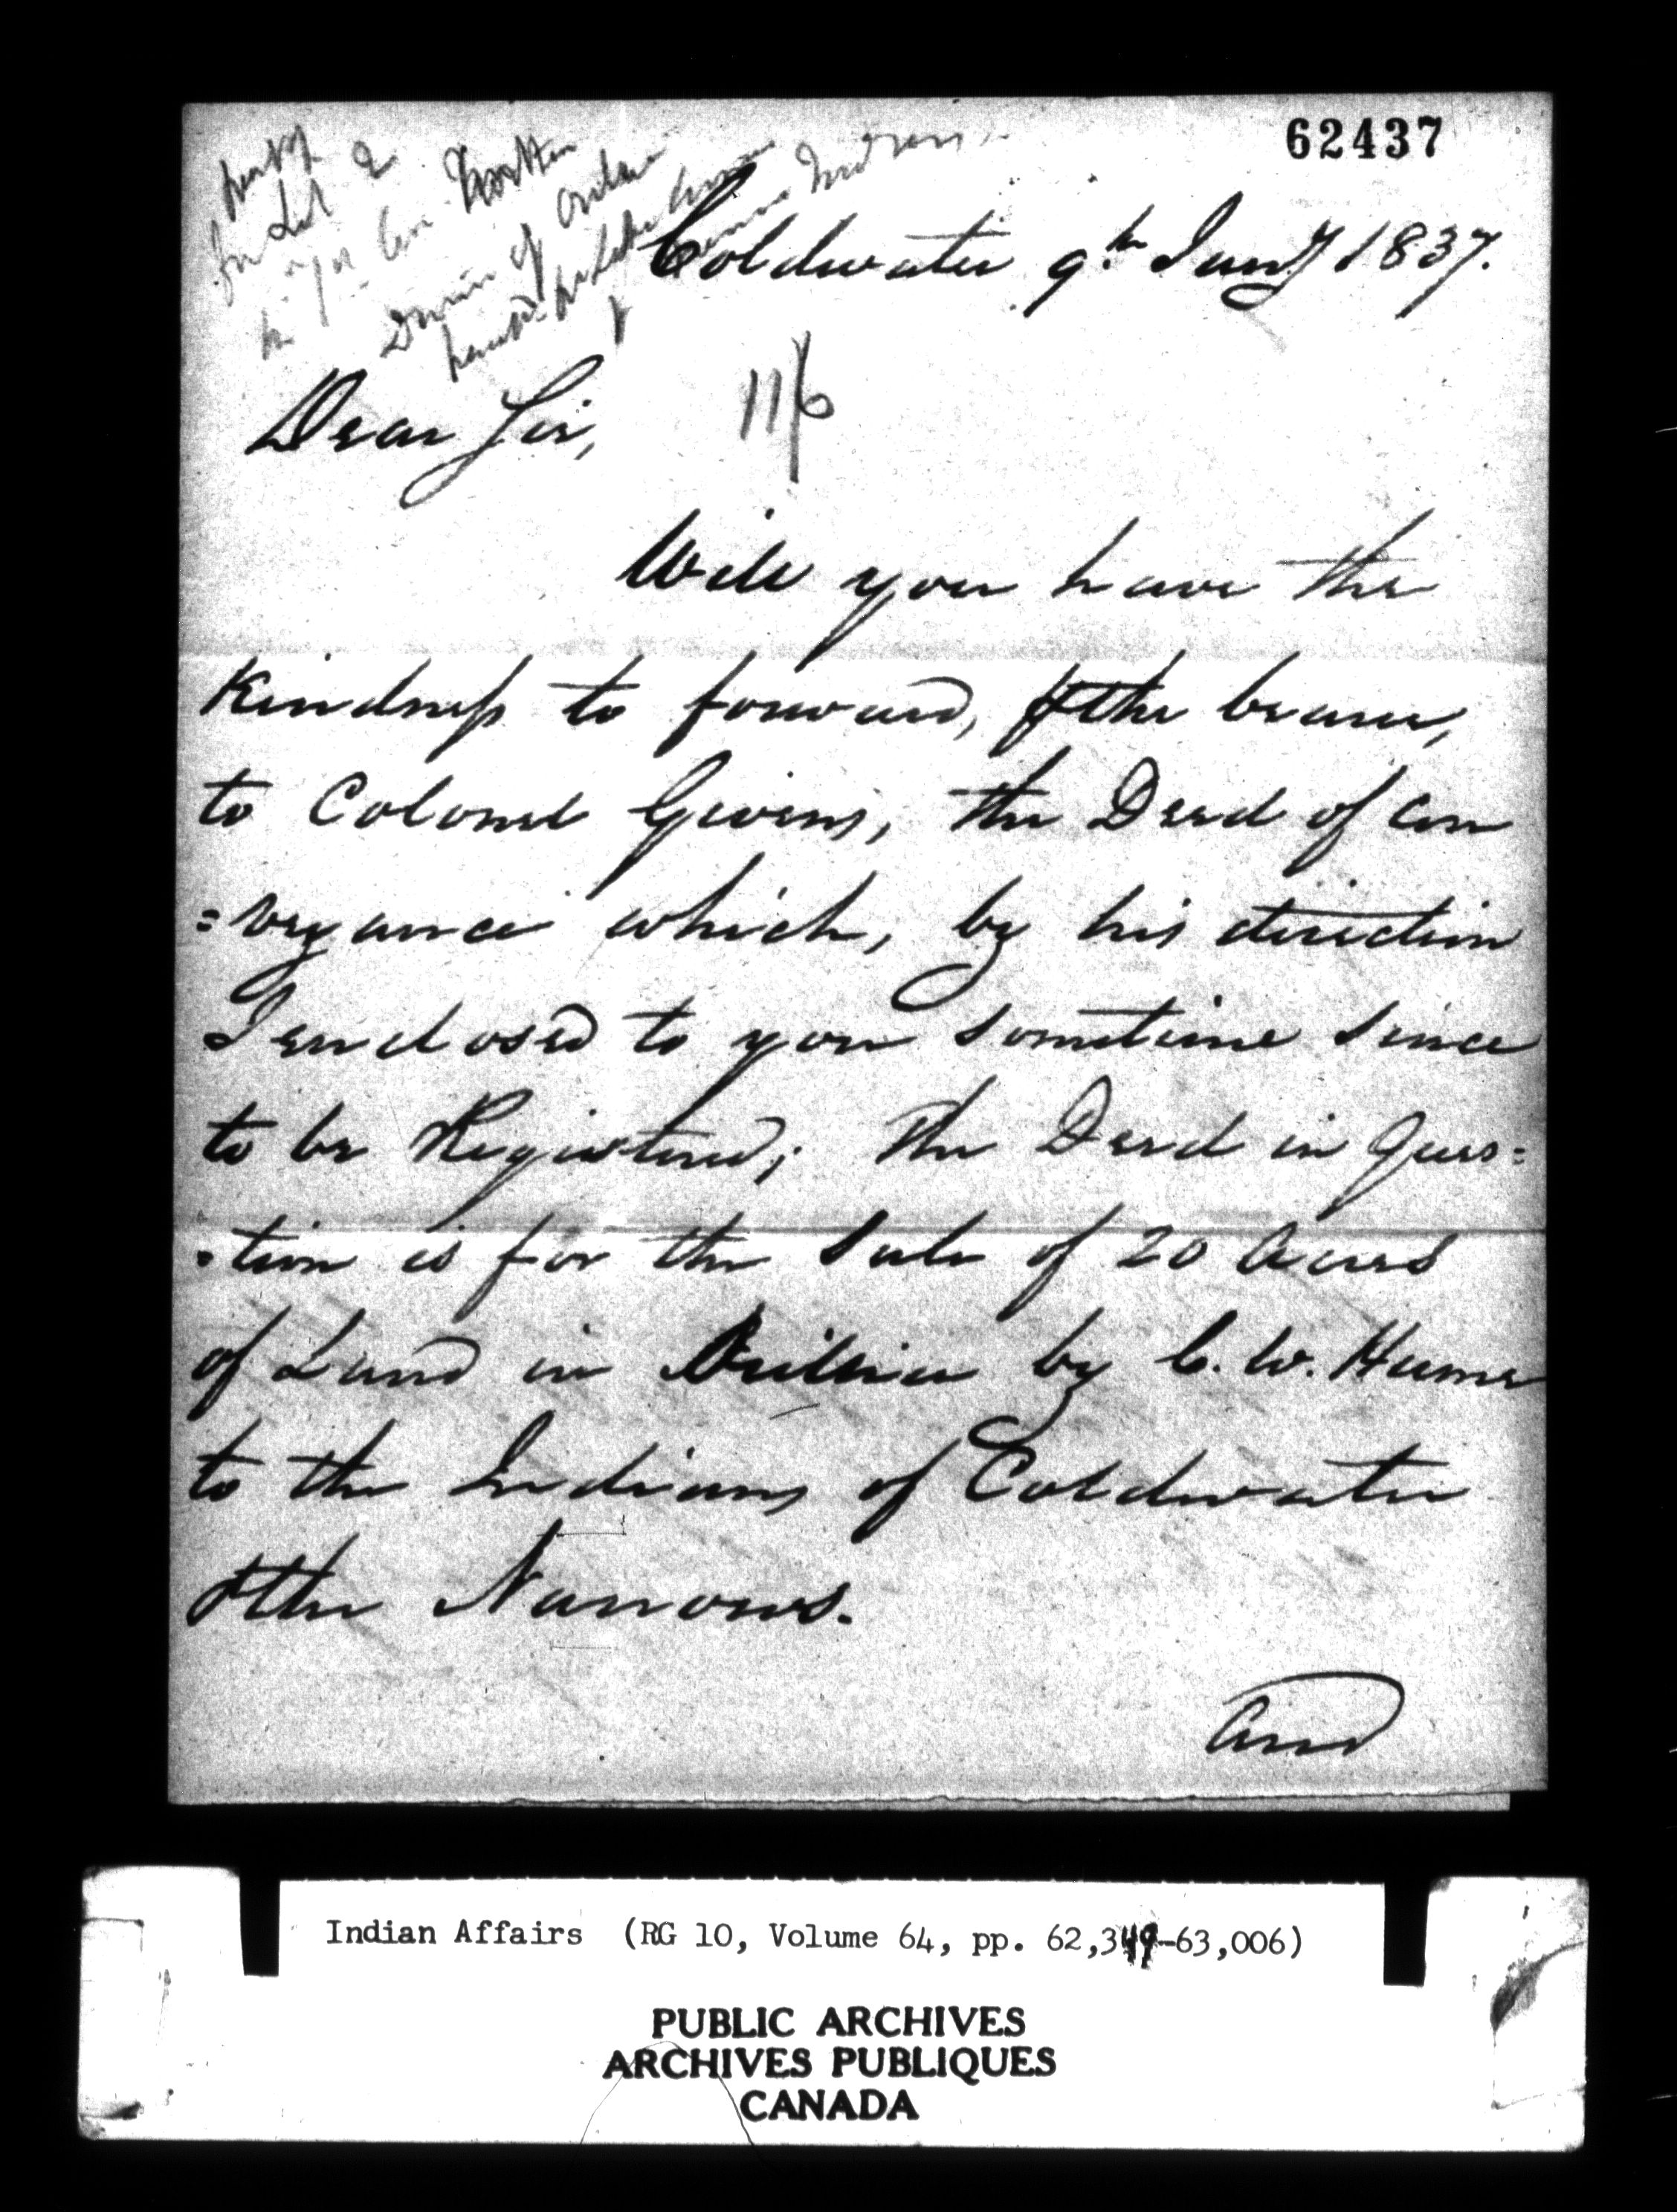 62437
Indians
Coldwater 9th Jany 1837.
Dear Sir,
11/6
Will you have the
kindness to forward, ⅌ the bearer,
to Colonel Givins, the Deed of Con
=veyance which, by his direction
I enclosed to you sometime since
to be Registered; The Deed in Ques=
=tion is for the Sale of 20 Acres
of Land in Orillia by C. W. Hume
to the Indians of Coldwater
& the Narrows.
And
Indian Affairs (RG 10, Volume 64, pp. 62,349-63,006)
PUBLIC ARCHIVES
ARCHIVES PUBLIQUES
CANADA